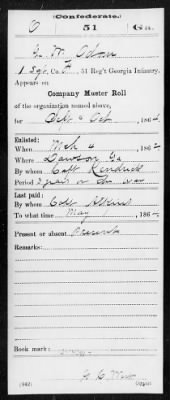 (Confederate.)
O 51 Ga.
G. W. Odom
1 Sgt, Co. F, 51 Reg't Georgia Infantry.
Appears on
Company Muster Roll
of the organization named above,
for Sept & Oct, 1864.
Enlisted:
When Mch 4, 1862
Where Dawson Ga
By whom Capt Kendrick
Period 3 years or the war
Last paid:
By whom Capt
To what time May, 186
Present or absent Present
Remarks:
Book mark:
(642) Copyist.